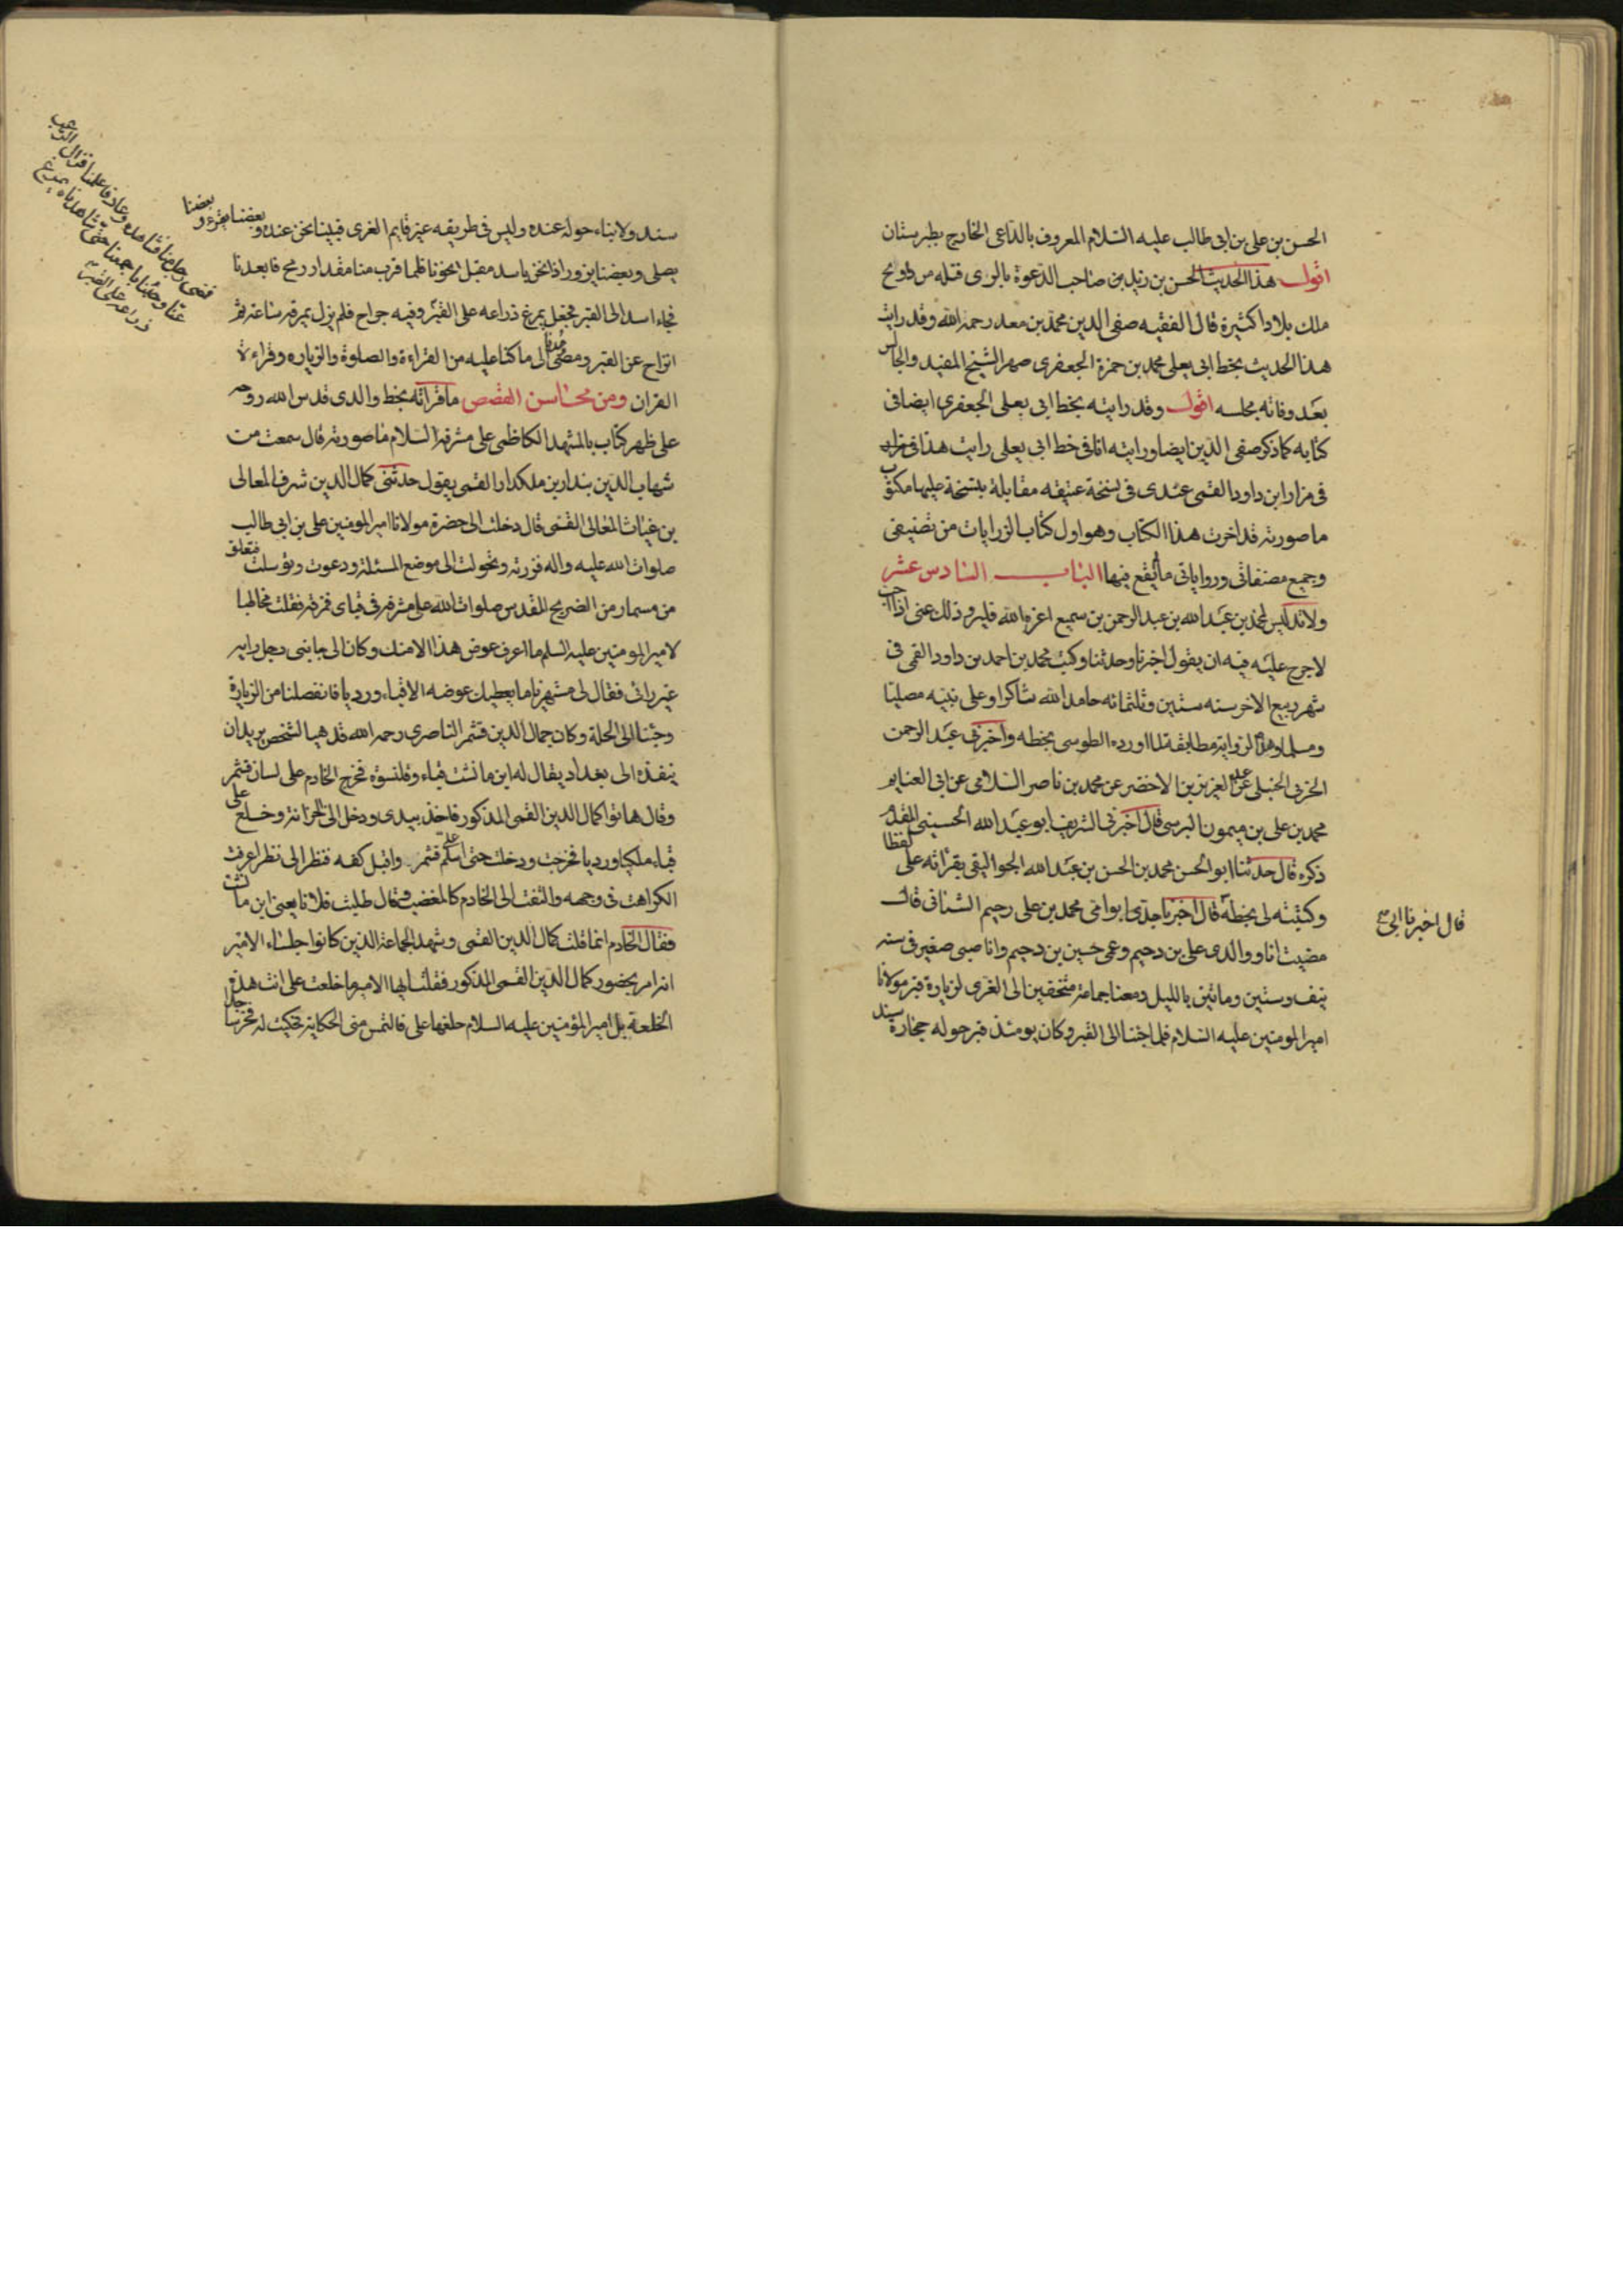 الحسن بن علي بن ابي طالب عليه السلام المعروف بالداعي الخارج بطبرستان
اقول هذا الحديث الحسن بن زيد بن صاحب الدعوة بالري قتله مرداويج
ملك بلادا كثيرة قال الفقيه صفي الدين محمد بن معد رحمه الله وقد رايت
هذا الحديث بخط ابي يعلى محمد بن حمزة الجعفري صهر الشيخ المفيد والجالس
بعد وفاته مجلسه اقول وقد رايته بخط ابي يعلى الجعفري ايضا في
كتابه كما ذكر صفي الدين ايضا ورايته انا في خط ابي يعلى رايت هذا في مزار
في مزار ابن داود القمي عندي في نسخة عتيقه مقابلة بنسخة عليها مكتوب
ما صورته قد اخرت هذا الكتاب وهو اول كتاب الزرايات من تصنيفي
وجميع مصنفاتي ورواياتي ما يقع فيها الباب السادس عشر
ولا تدليس لمحمد بن عبد الله بن عبد الرحمن بن سميع اعزه الله فليرو ذلك عني اذا احب
لا حرج عليه فيه ان يقول اخبرنا وحدثنا وكتب محمد بن احمد بن داود القمي في
شهر ربيع الاخر سنه ستين وثلثمائه حامدا لله شاكرا وعلى نبيه مصليا
ومسلما وهذه الرواية مطابقة لما اورده الطوسي بخطه واخبرني عبد الرحمن
الحربي الحنبلي عن عبد العزيز بن الاخضر عن محمد بن ناصر السلامي عن ابي الغنايم
محمد بن علي بن ميمون البرسي قال اخبرني الشريف ابو عبد الله الحسيني المقدم
ذكره قال حدثنا ابو الحسن محمد بن الحسن بن عبد الله الجواليقي بقراته علي لفظا
وكتبته لي بخطه قال اخبرنا جدي ابو امي محمد بن علي رحيم الشناني قال
قال اخبرنا ابي
مضيت انا ووالدي علي بن دحيم وعمي حسين بن دحيم وانا صبي صغير في سنه
نيف وستين ومائتين بالليل ومعنا جماعة متخفين الى الغري لزيارة قبر مولانا
امير المومنين عليه السلام فلما جئنا الى القبر وكان يومئذ قبر حوله حجارة سند
سند ولا بناء حوله عنده وليس في طريقه غير قايم الغري فبينا نحن عنده وبعضنا يقرء وبعضنا
يصلي وبعضنا يزور اذا نحن باسد مقبل نحونا فلما قرب منا مقدار رمح فابعدنا
فجاء اسد الى القبر فجعل يمرغ ذراعه على القبر وفيه جراح فلم يزل يمرغه ساعة ثم
فمضى رجل منا فشاهده وعاد فاعلمنا فزال الرعب
عنا وجئنا باجمعنا حتى شاهدناه يمرغ
ذراعه على القبر
انزاح عن القبر ومضى عدنا الى ما كنا عليه من القراءة والصلوة والزياره وقراءة
القران ومن محاسن القصص ما قراته بخط والدي قدس الله روحه
على ظهر كتاب بالمشهد الكاظمي على مشرفه السلام ما صورته قال سمعت من
شهاب الدين بندار بن ملكدار القمي يقول حدثني كمال الدين شرف المعالي
بن غياث المعالي القمي قال دخلت الى حضرة مولانا امير المومنين علي بن ابي طالب
صلوات الله عليه واله فزرته وتحولت الى موضع المسئلة ودعوت وتوسلت فتعلق
من مسمار من الضريح المقدس صلوات الله على مشرفه في قباي فمزقه فقلت مخاطبا
لامير المومنين عليه السلم ما اعرف عوض هذا الا منك وكان الى جانبي رجل رايه
غير رائي فقال لي مستهزئا ما يعطيك عوضه الا قباء ورديا فانفصلنا من الزيارة
وجئنا الى الحلة وكان جمال الدين قشتمر الناصري رحمه الله قد هيا لشخص يريد ان
ينفذه الى بغداد يقال له ابن مانشت قباء وقلنسوة فخرج الخادم على لسان قشتمر
وقال هاتوا كمال الدين القمي المذكور فاخذ بيدي ودخل الى الخزانة وخلع علي
قباء ملكيا ورديا فخرجت ودخلت حتى اسلم على قشتمر واقبل كفه فنظر الي نظرا عرفت
الكراهة في وجهه والتفت الى الخادم كالمغضب وقال طلبت فلانا يعني ابن مانشت
فقال الخادم انما قلت كمال الدين القمي وشهد الجماعة الذين كانوا جلساء الامير
انه امر بحضور كمال الدين القمي المذكور فقلت ايها الامير ما خلعت علي انت هذه
الخلعة بل امير المؤمنين عليه السلام خلعها علي فالتمس مني الحكاية فحكيت له فخر ساجدا